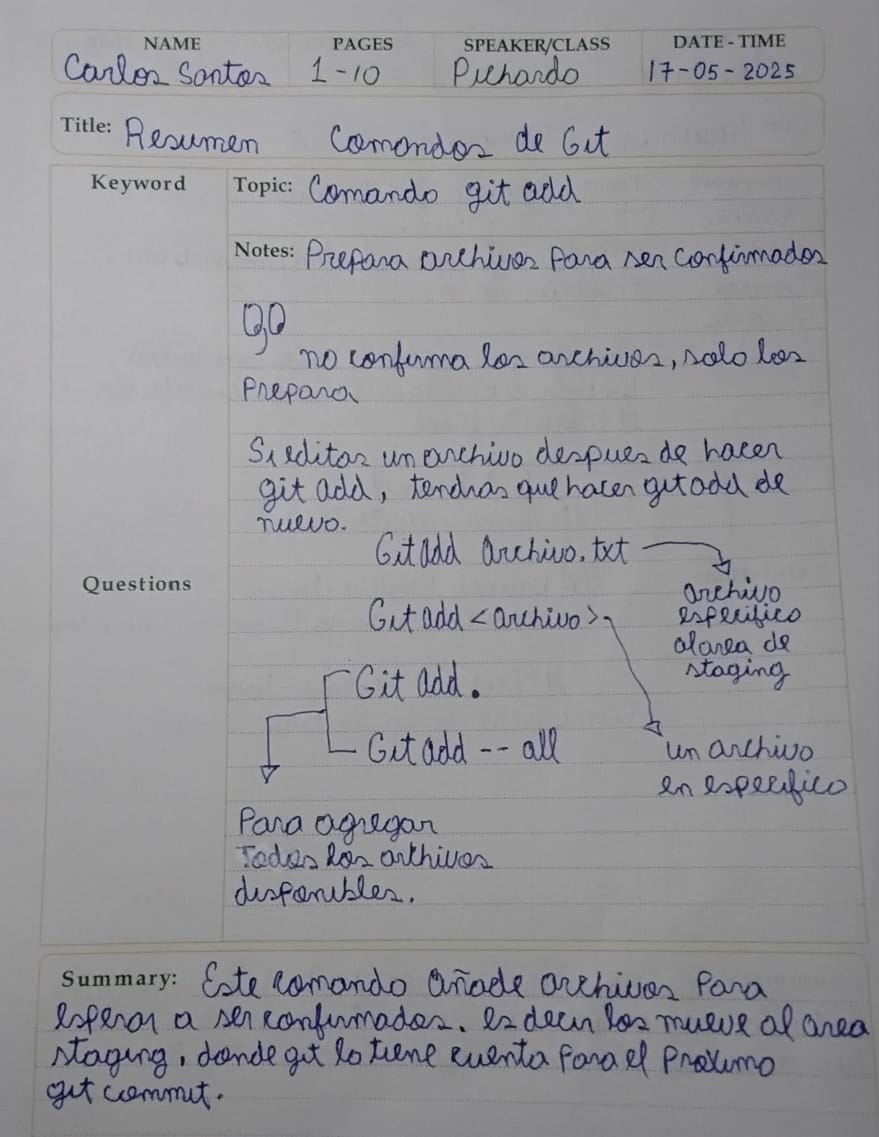 NAME PAGES SPEAKER/CLASS DATE - TIME
Carlos Santos 1-10 Pichardo 17-05-2025
Title: Resumen Comandos de Git
Keyword Topic: Comando git add
Notes: Prepara archivos para ser confirmados
no confirma los archivos, solo los
Prepara
Si editas un archivo despues de hacer
git add, tendras que hacer git add de
nuevo.
Git add archivo.txt
archivo
especifico
al area de
staging
Questions
Git add <archivo>
un archivo
en especifico
Git add .
Git add -- all
Para agregar
Todos los archivos
disponibles.
Summary: Este comando añade archivos Para
esperar a ser confirmados. es decir los mueve al area
staging, donde git lo tiene cuenta para el Proximo
git commit.